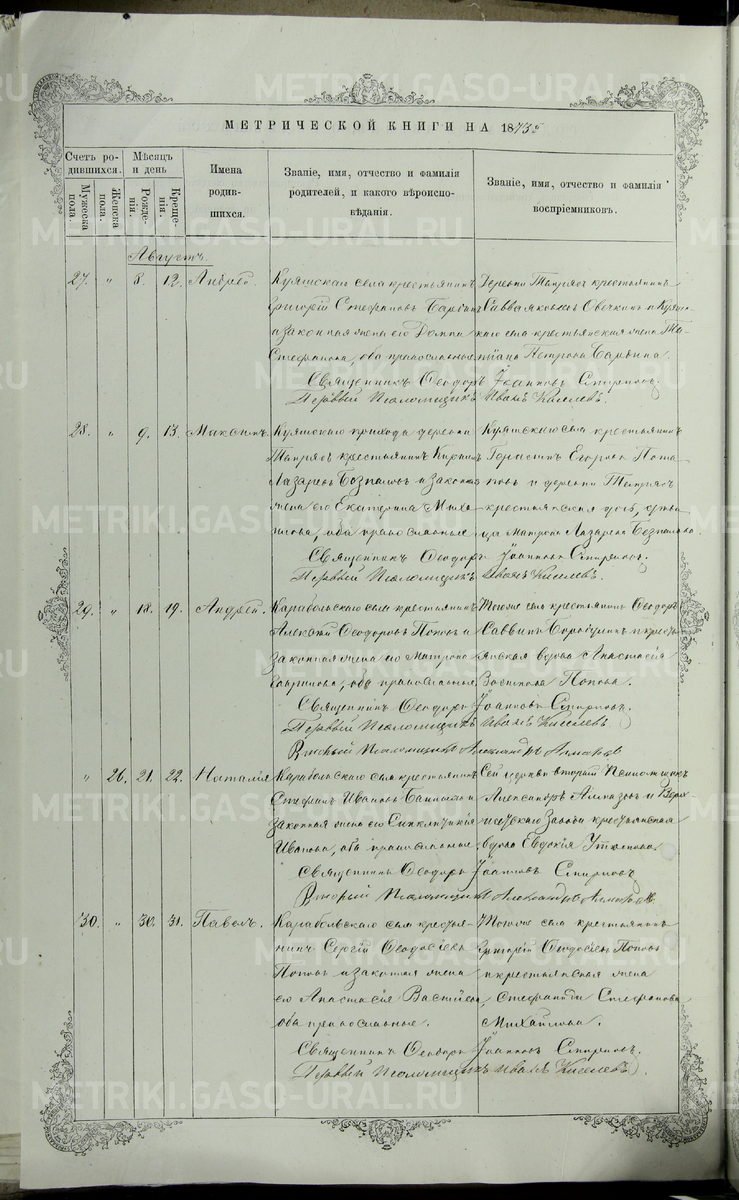 МЕТРИЧЕСКОЙ КНИГИ НА 1873
Счетъ родившихся.
Мужеска пола.
Женска пола.
Мѣсяцъ и день
Рожденія.
Крещенія.
Имена родившихся.
Званіе, имя, отчество и фамилія родителей, и какого вѣроисповѣданія.
Званіе, имя, отчество и фамилія воспріемниковъ.
Августъ.
27. " 8. 12. Андрей.
Куяшскаго села крестьянинъ
Григорій Стефановъ
и законная жена его Домна
Стефанова, оба православные
Деревни Тыпрясъ крестьянинъ
Савва Яковлевъ Овечкинъ и Куяш-
скаго села крестьянская жена Та-
тіана Петрова
Священникъ Ѳеодоръ Іоанновъ Спиринъ.
Первый Псаломщикъ Иванъ Киселевъ.
28. " 9. 13. Максимъ.
Куяшскаго прихода деревни
Тыпрясъ крестьянинъ
Лазаревъ и законная
жена его Екатерина Миха-
илова, оба православные
Куяшскаго села крестьянинъ
Егоровъ Пота-
повъ и деревни Тыпрясъ
крестьянская дочь, дѣви-
ца Матрона Лазарева
Священникъ Ѳеодоръ Іоанновъ Спиринъ.
Первый Псаломщикъ Иванъ Киселевъ.
29. " 18. 19. Андрей.
Карабольскаго села крестьянинъ
Алексѣй Ѳеодоровъ Поповъ и
законная жена его Матрона
Гаврилова, оба православные
Тогоже села крестьянинъ Ѳеодоръ
Саввинъ и кресть-
янская вдова Анастасія
Попова.
Священникъ Ѳеодоръ Іоанновъ Спиринъ.
Первый Псаломщикъ Иванъ Киселевъ
Вторый Псаломщикъ Александръ Алмазовъ
" 26. 21. 22. Наталія
Карабольскаго села крестьянинъ
Стефанъ Ивановъ и
законная жена его Синклитикія
Иванова, оба православные
Сей церкви вторый Псаломщикъ
Александръ Алмазовъ и Верх-
Завода крестьянская
вдова Евдокія
Священникъ Ѳеодоръ Іоанновъ Спиринъ
Вторый Псаломщикъ Александръ Алмазовъ
30. " 30. 31. Павелъ.
Карабольскаго села крестья-
нинъ Сергій Ѳеодосіевъ
Поповъ и законная жена
его Анастасія
оба православные.
Тогоже села крестьянинъ
Григорій Ѳеодосіевъ Поповъ
и крестьянская жена
Стефанида Стефанова
Михайлова.
Священникъ Ѳеодоръ Іоанновъ Спиринъ.
Первый Псаломщикъ Иванъ Киселевъ
METRIKI.GASO-URAL.RU